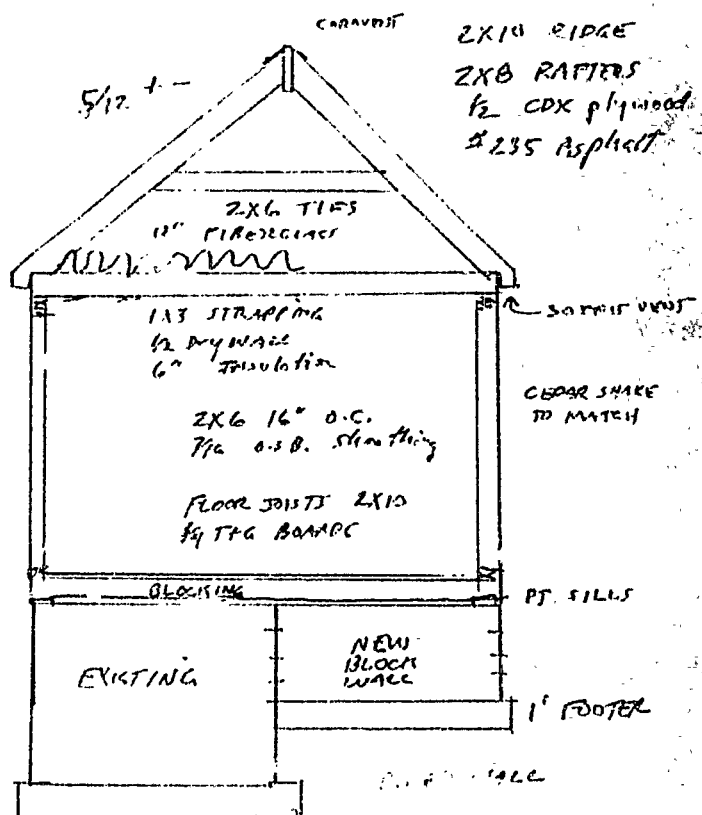 CORAVENT
2X10 RIDGE
2X8 RAFTERS
1/2 CDX plywood
#235 Asphalt
5/12 + -
2X6 TIES
12" FIBERGLASS
SOFFIT VENT
1X3 STRAPPING
1/2 DRYWALL
6" INSULATION
CEDAR SHAKE
TO MATCH
2X6 16" O.C.
7/16 O.S.B. Sheathing
FLOOR JOISTS 2X10
3/4 T+G BOARDS
BLOCKING
PT. SILLS
EXISTING
NEW
BLOCK
WALL
1' FOOTER